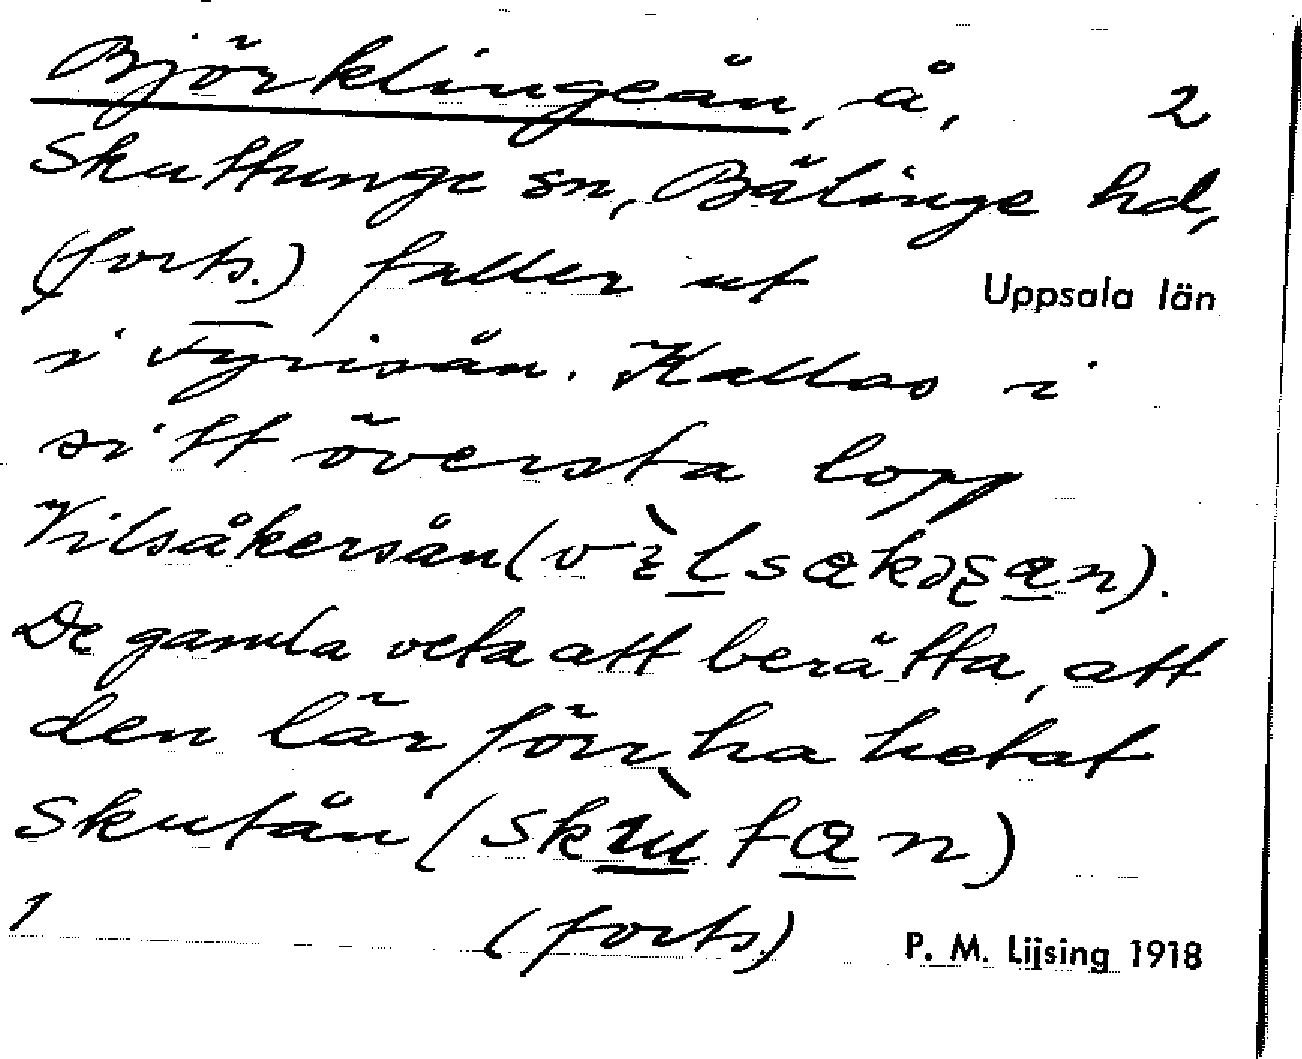 Björklingeån, å, 2
Skuttunge sn, Bälinge hd,
(forts.) faller ut Uppsala län
i Fyrisån. Kallas i
sitt översta lopp
Vilsåkersån
De gamla veta att berätta, att
den lär förr ha hetat
Skutån
1 (forts.) P. M. Lijsing 1918